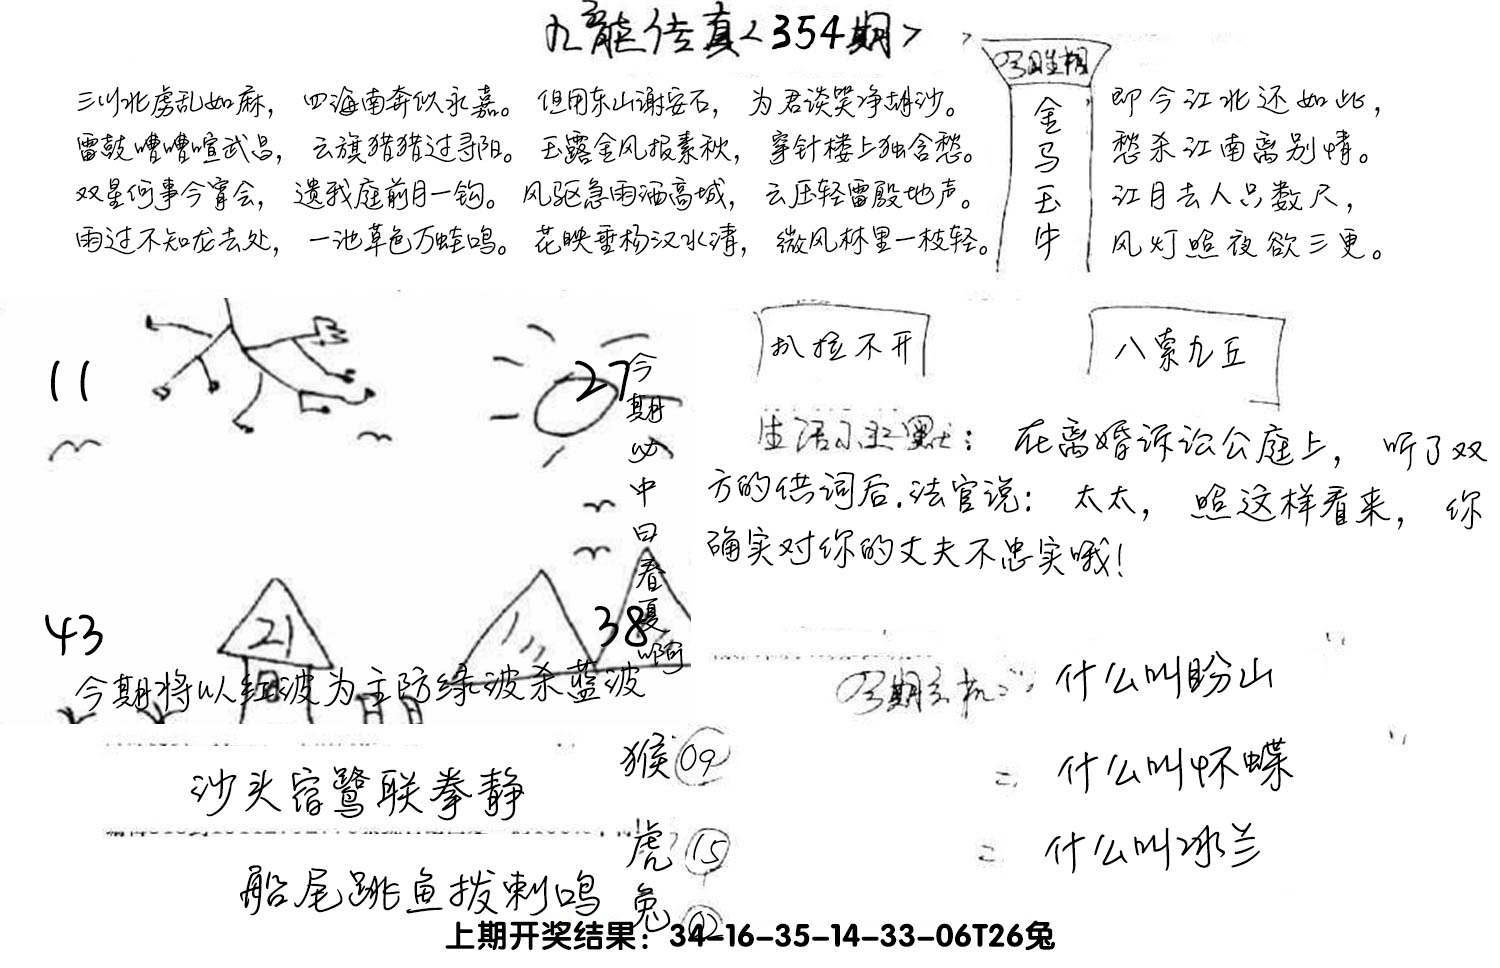 九龍传真<354期>
今日生相
金马玉牛
三川北虏乱如麻，四海南奔似永嘉。但用东山谢安石，为君谈笑净胡沙。
雷鼓嘈嘈喧武昌，云旗猎猎过寻阳。玉露金风报素秋，穿针楼上独含愁。
双星何事今宵会，遗我庭前月一钩。风驱急雨洒高城，云压轻雷殷地声。
雨过不知龙去处，一池草色万蛙鸣。花映垂杨汉水清，微风林里一枝轻。
即今江北还如此，
愁杀江南离别情。
江月去人只数尺，
风灯照夜欲三更。
11
27
43
21
38
今期必中曰春夏啊
今期将以红波为主防绿波杀蓝波
扒拉不开
八索九丘
生活小幽默：在离婚诉讼公庭上，听了双
方的供词后.法官说：太太，照这样看来，你
确实对你的丈夫不忠实哦！
今期玄机
什么叫盼山
什么叫怀蝶
什么叫冰兰
沙头宿鹭联拳静
船尾跳鱼拨剌鸣
猴09
虎15
兔02
上期开奖结果：34-16-35-14-33-06T26兔